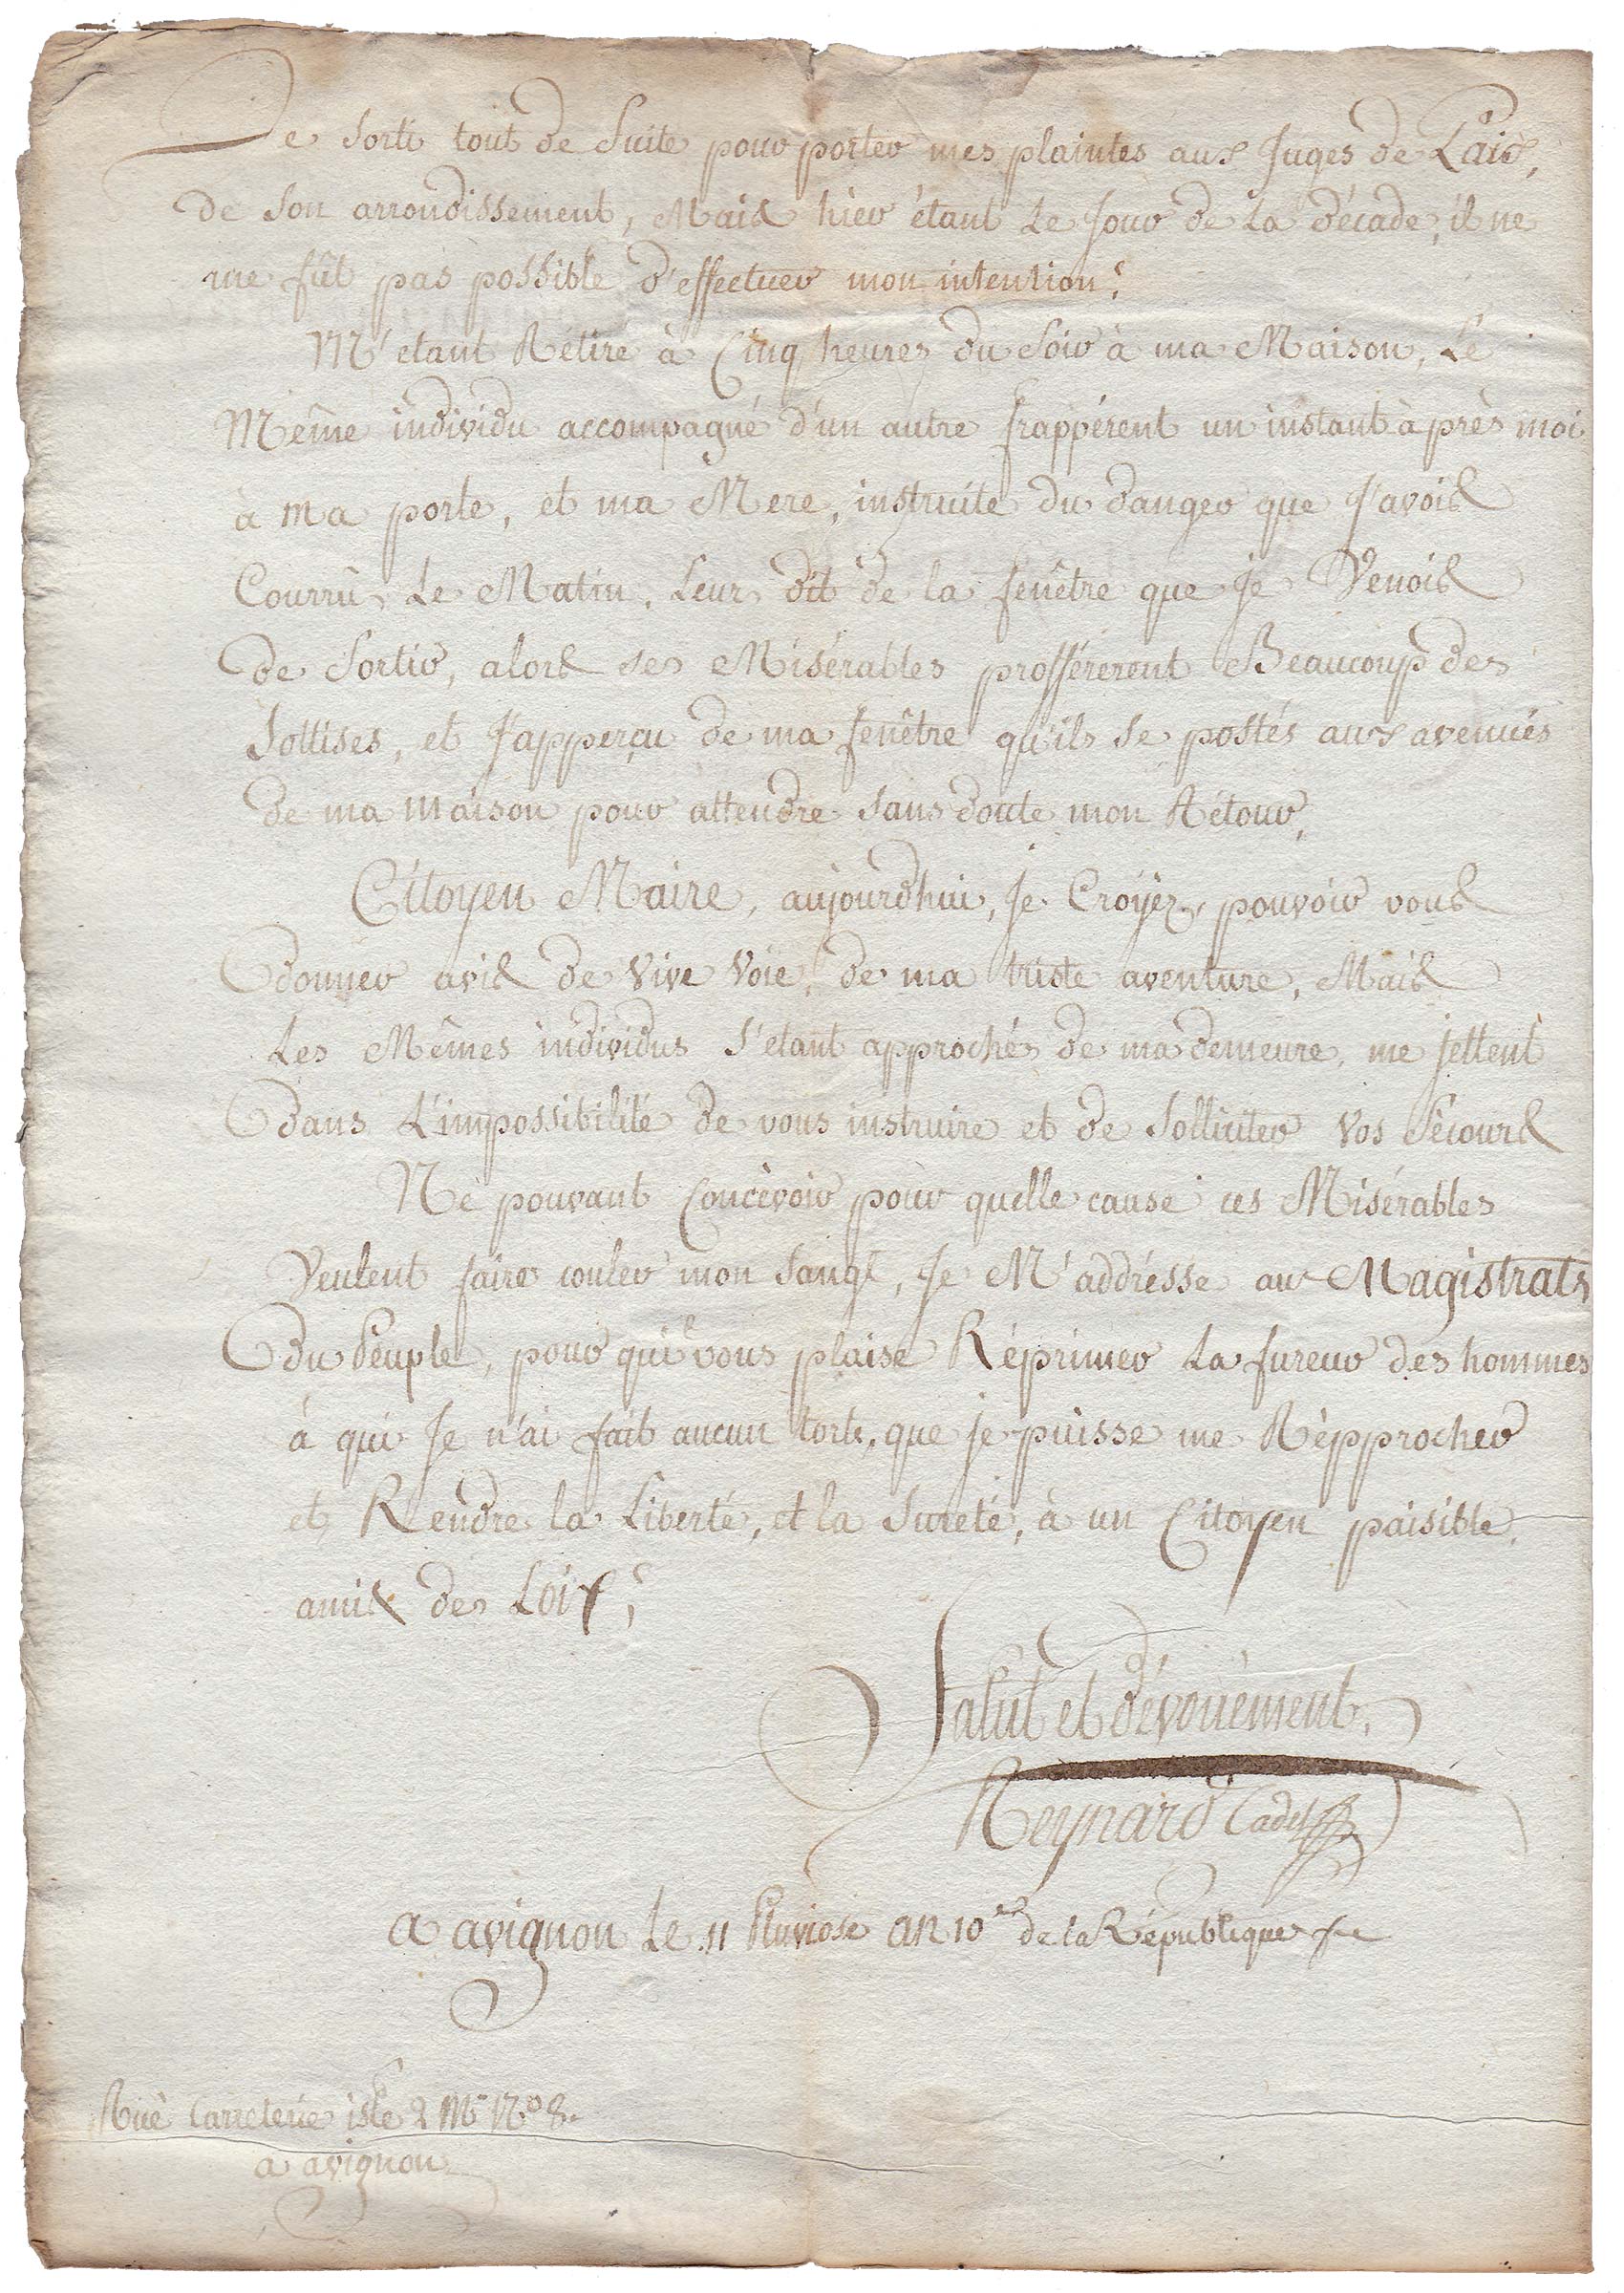 Je Sorti tout de Suite pour porter mes plaintes aux Juges de Paix,
de Son arrondissement, Mais hièr étant Le Jour de La décade, il ne
me fût pas possible d'effectuer mon intention;
M'etant Rétiré à Cinq heures du Soir à ma Maison, Le
Même individu accompagné d'un autre frappérent un instant à près moi
à ma porte, et ma Mere, instruite du danger que J'avois
Courrû Le Matin, Leur dit de la fenêtre que Je Venois
de Sortir, alors ses Misérables proffërerent Beaucoup des
Sottises, et J'apperçu de ma fenêtre qu'ils Se postés aux avenués
de ma maison pour attendre Sans doute mon Rétour,
Citoyen Maire, aujourdhui, Je Croyéz pouvoir vous
donner avis de Vive Voie, de ma triste aventure, Mais
Les Mêmes individus S'etant approchés de ma demeure, me Jettent
dans L'impossibilité de vous instruire et de Solliciter Vos Sécours
Né pouvant Concèvoir pour quelle cause ces Misérables
Veulent faire couler mon Sang, Je M'addrésse au Magistrats
du Peuple, pour qu'il vous plaise Réprimer La fureur des hommes
à qui Je n'ai fait aucun tort, que je puisse me Répprocher
et Rendre la Liberté, et la Sureté, à un Citoyen paisible,
amis des Loix;
Salut et dévouèment,
Reynard Cadet
a avignon Le 11 Pluviose an 10e de la République fse
Ruë Carreterie isle 2 Mn No 8.
a avignon